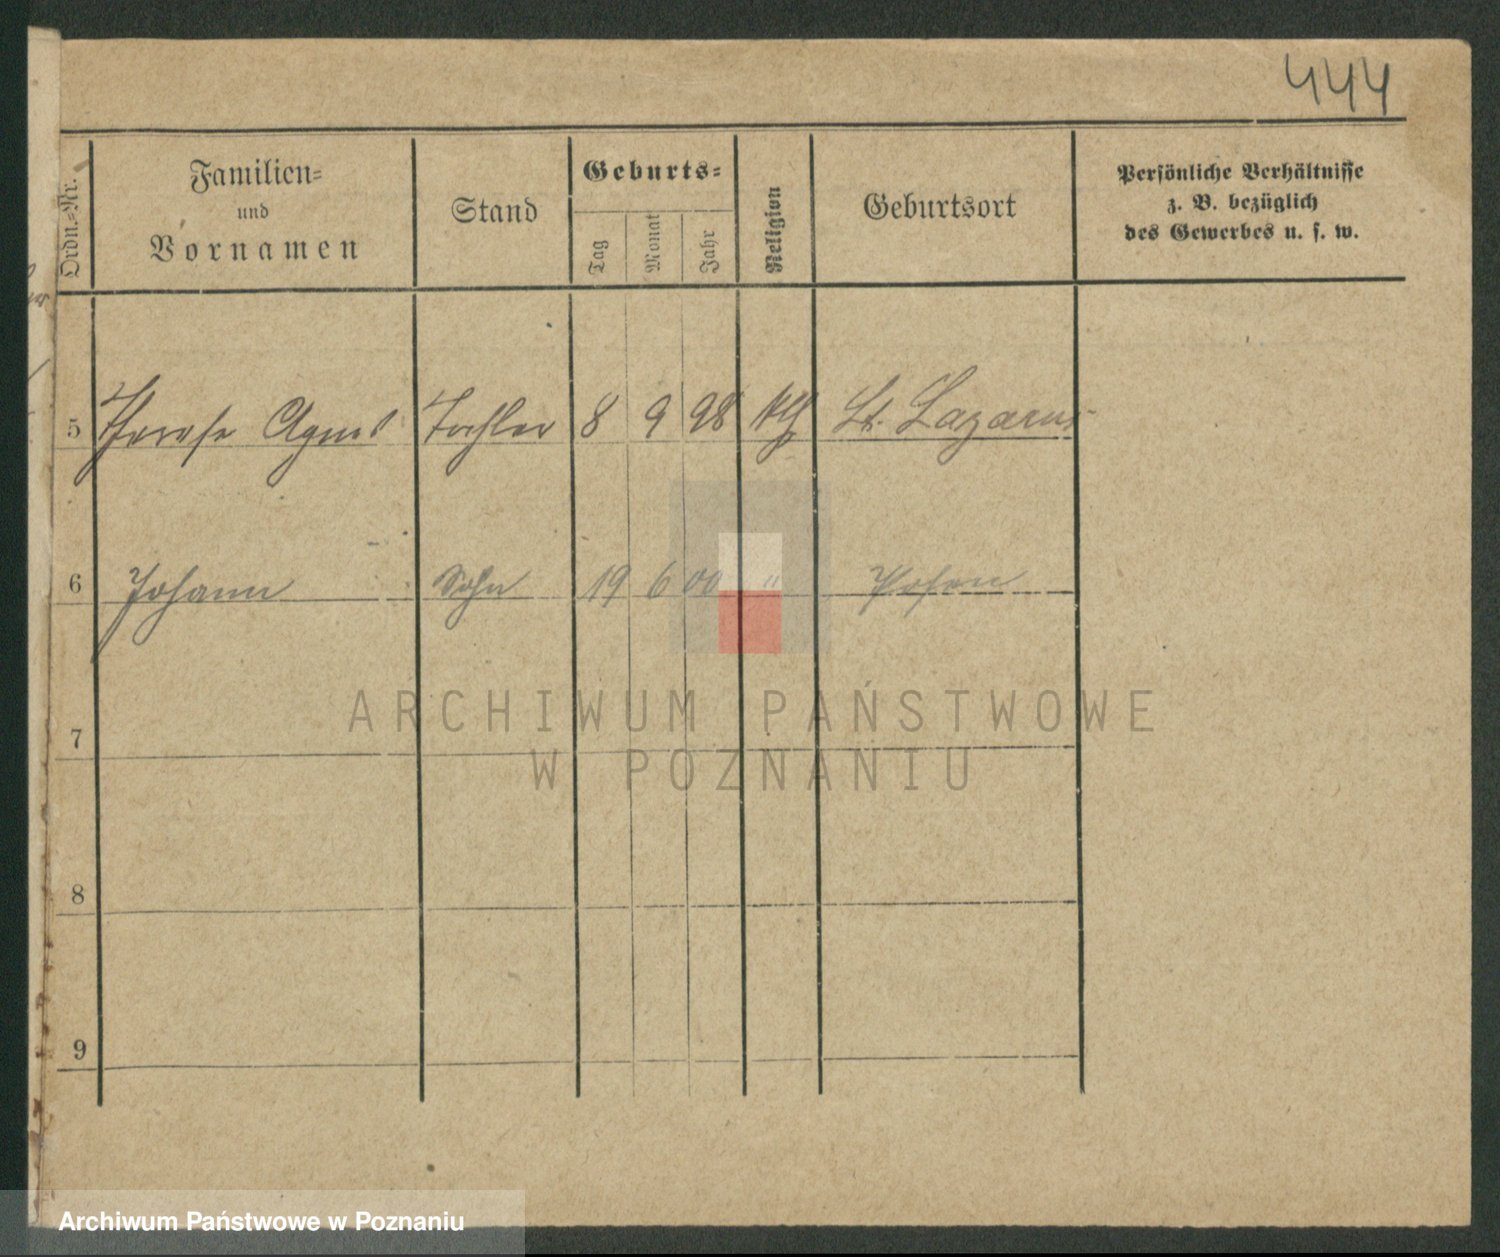 444
Ordn.-Nr.
Familien-
und
Vornamen
Stand
Geburts-
Tag
Monat
Jahr
Religion
Geburtsort
Persönliche Verhältnisse
z. B. bezüglich
des Gewerbes u. s. w.
5 Therese Agnes Tochter 8 9 98 kth St. Lazarus
6 Johann Sohn 19 6 00 " Posen
ARCHIWUM PAŃSTWOWE
W POZNANIU
7
8
9
Archiwum Państwowe w Poznaniu